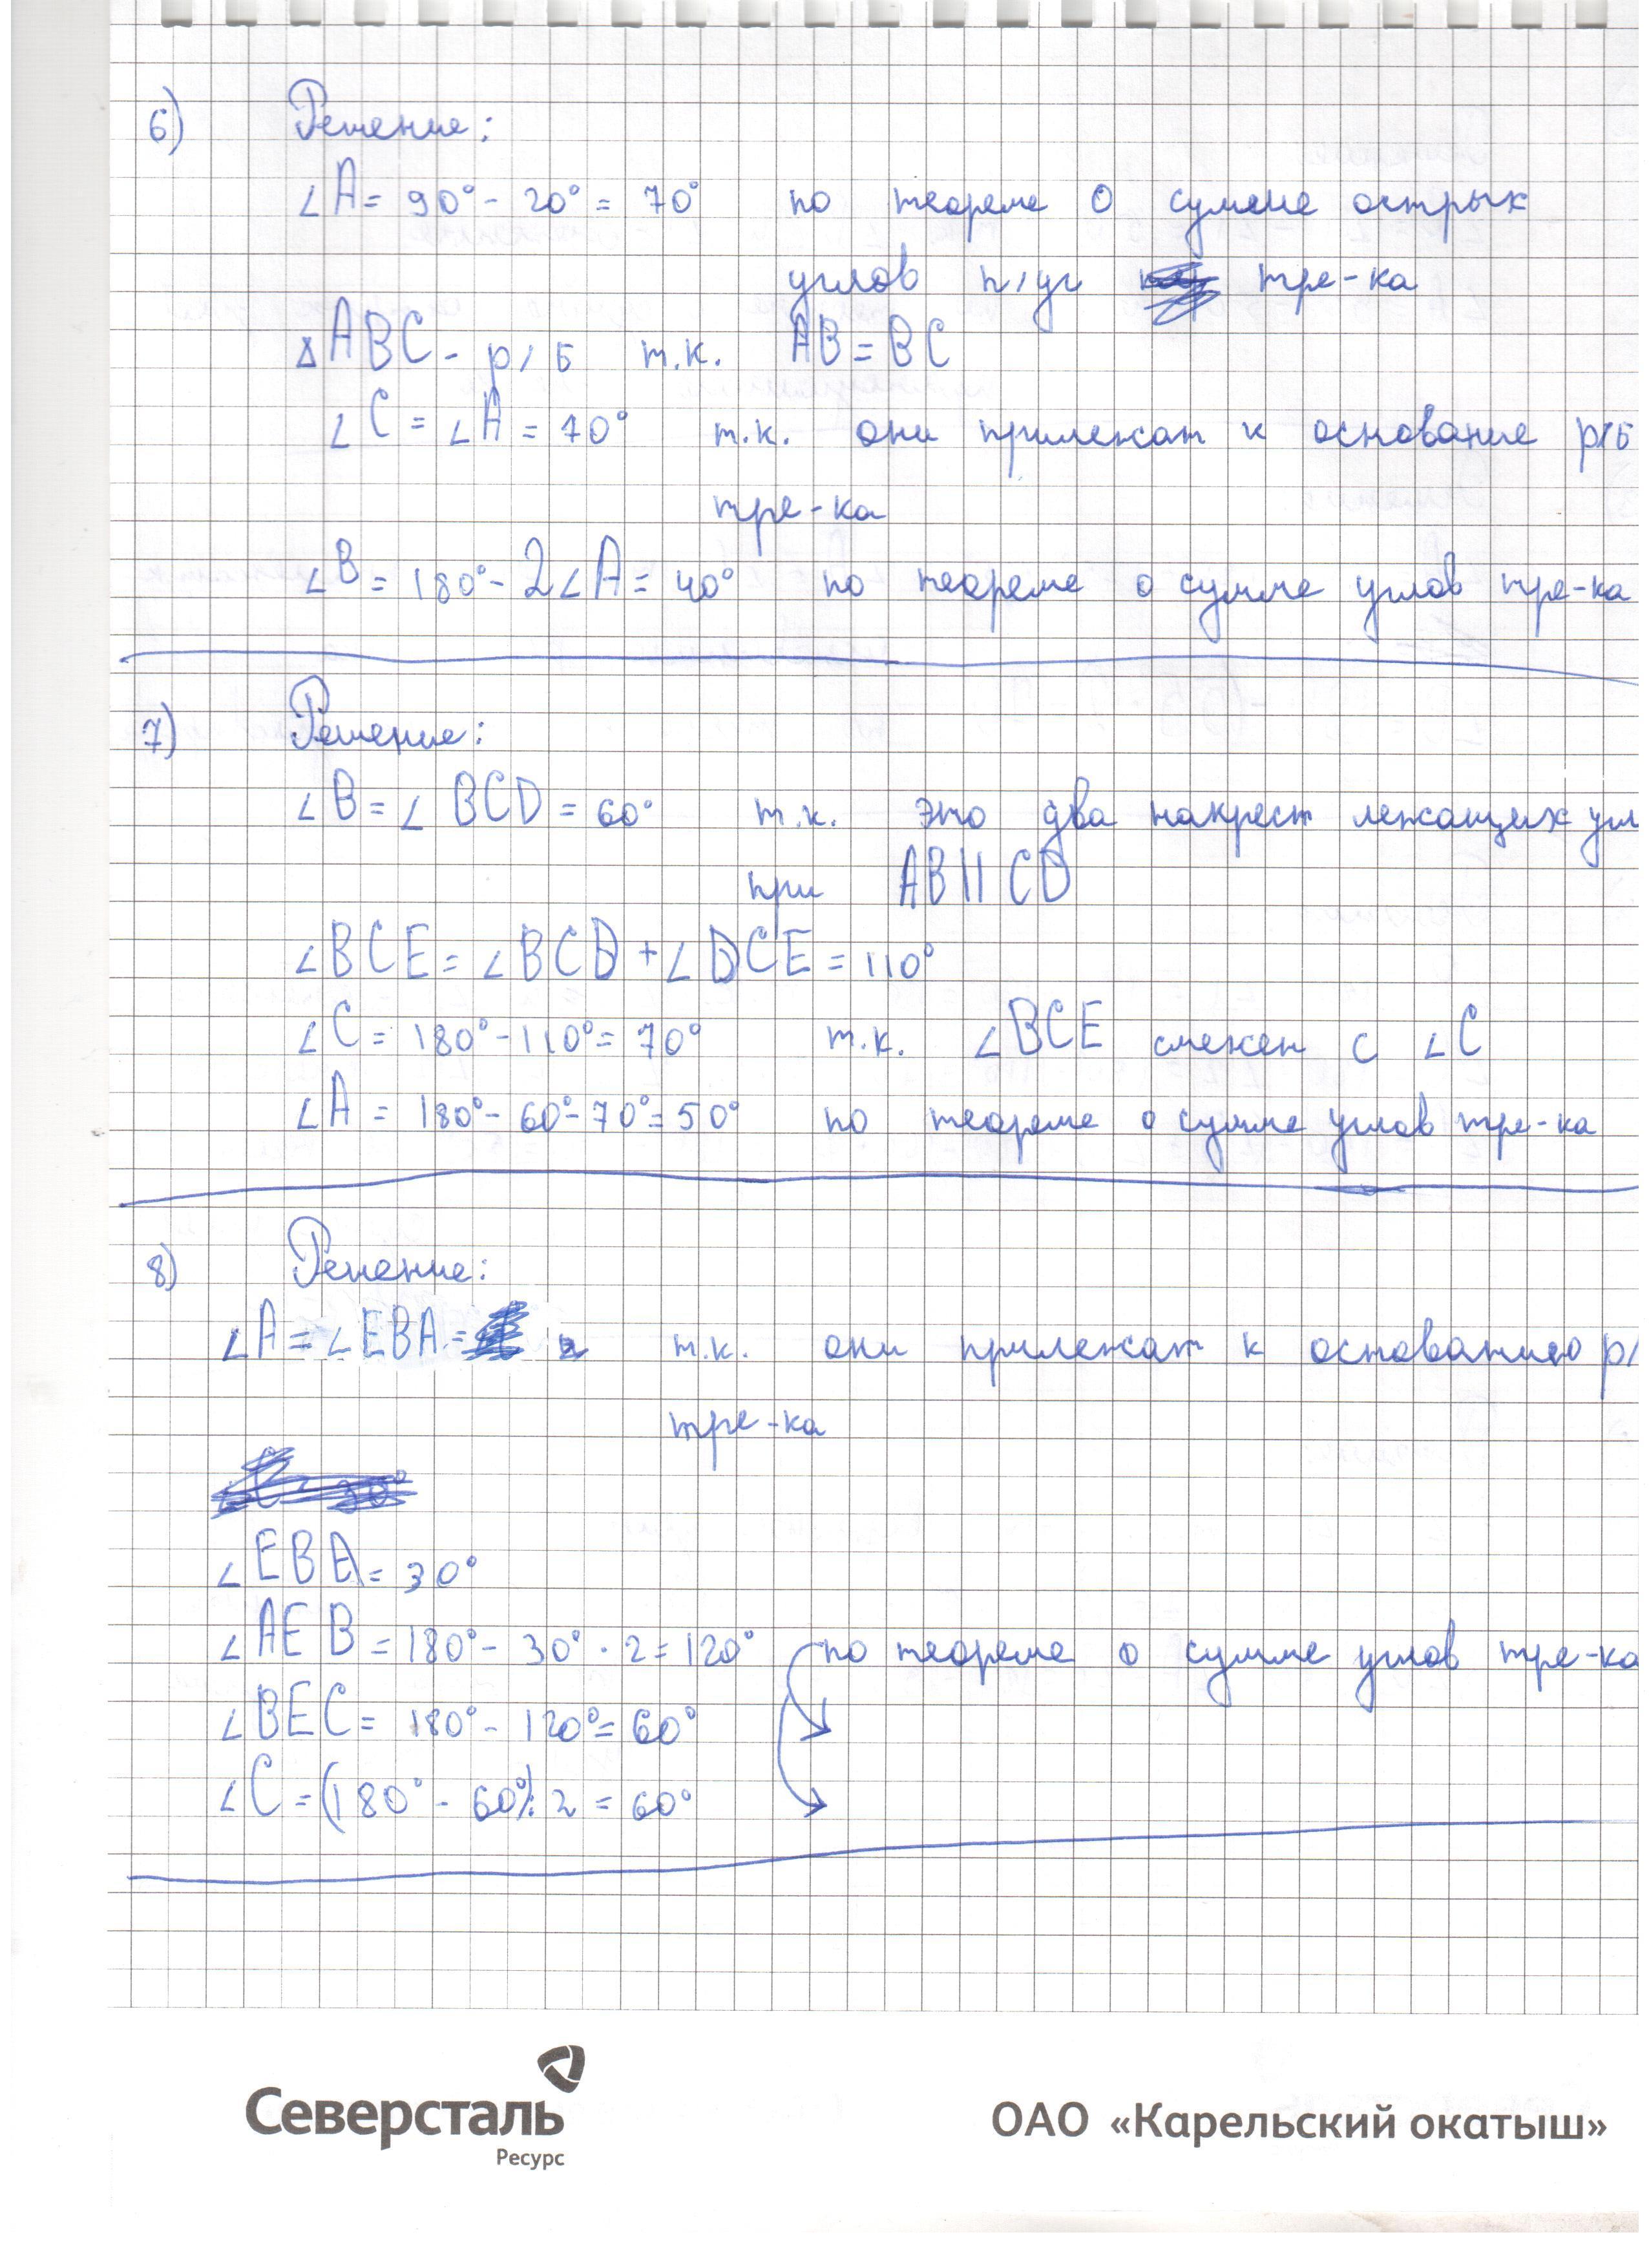 6) Решение:
∠A = 90° - 20° = 70° по теореме о сумме острых
углов п/уг тре-ка
△ABC - р/б т.к. AB = BC
∠C = ∠A = 70° т.к. они прилежат к основание р/б
тре-ка
∠B = 180° - 2∠A = 40° по теореме о сумме углов тре-ка
7) Решение:
∠B = ∠BCD = 60° т.к. это два накрест лежащих угл
при AB || CD
∠BCE = ∠BCD + ∠DCE = 110°
∠C = 180° - 110° = 70° т.к. ∠BCE смежен с ∠C
∠A = 180° - 60° - 70° = 50° по теореме о сумме углов тре-ка
8) Решение:
∠A = ∠EBA = т.к. они прилежат к основанию р/
тре-ка
∠EBA = 30°
∠AEB = 180° - 30° · 2 = 120° по теореме о сумме углов тре-ка
∠BEC = 180° - 120° = 60°
∠C = (180° - 60°) : 2 = 60°
Северсталь
Ресурс
ОАО «Карельский окатыш»